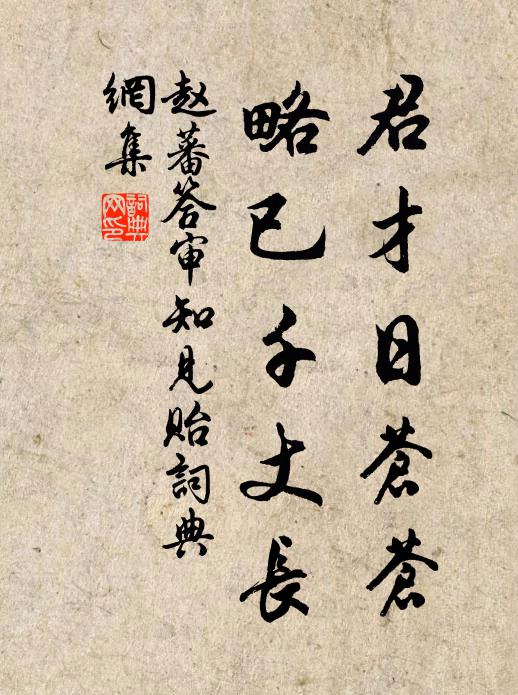 君才日蒼蒼
略已千丈長
赵蕃答审知見貽詞典
網集
詞典網印